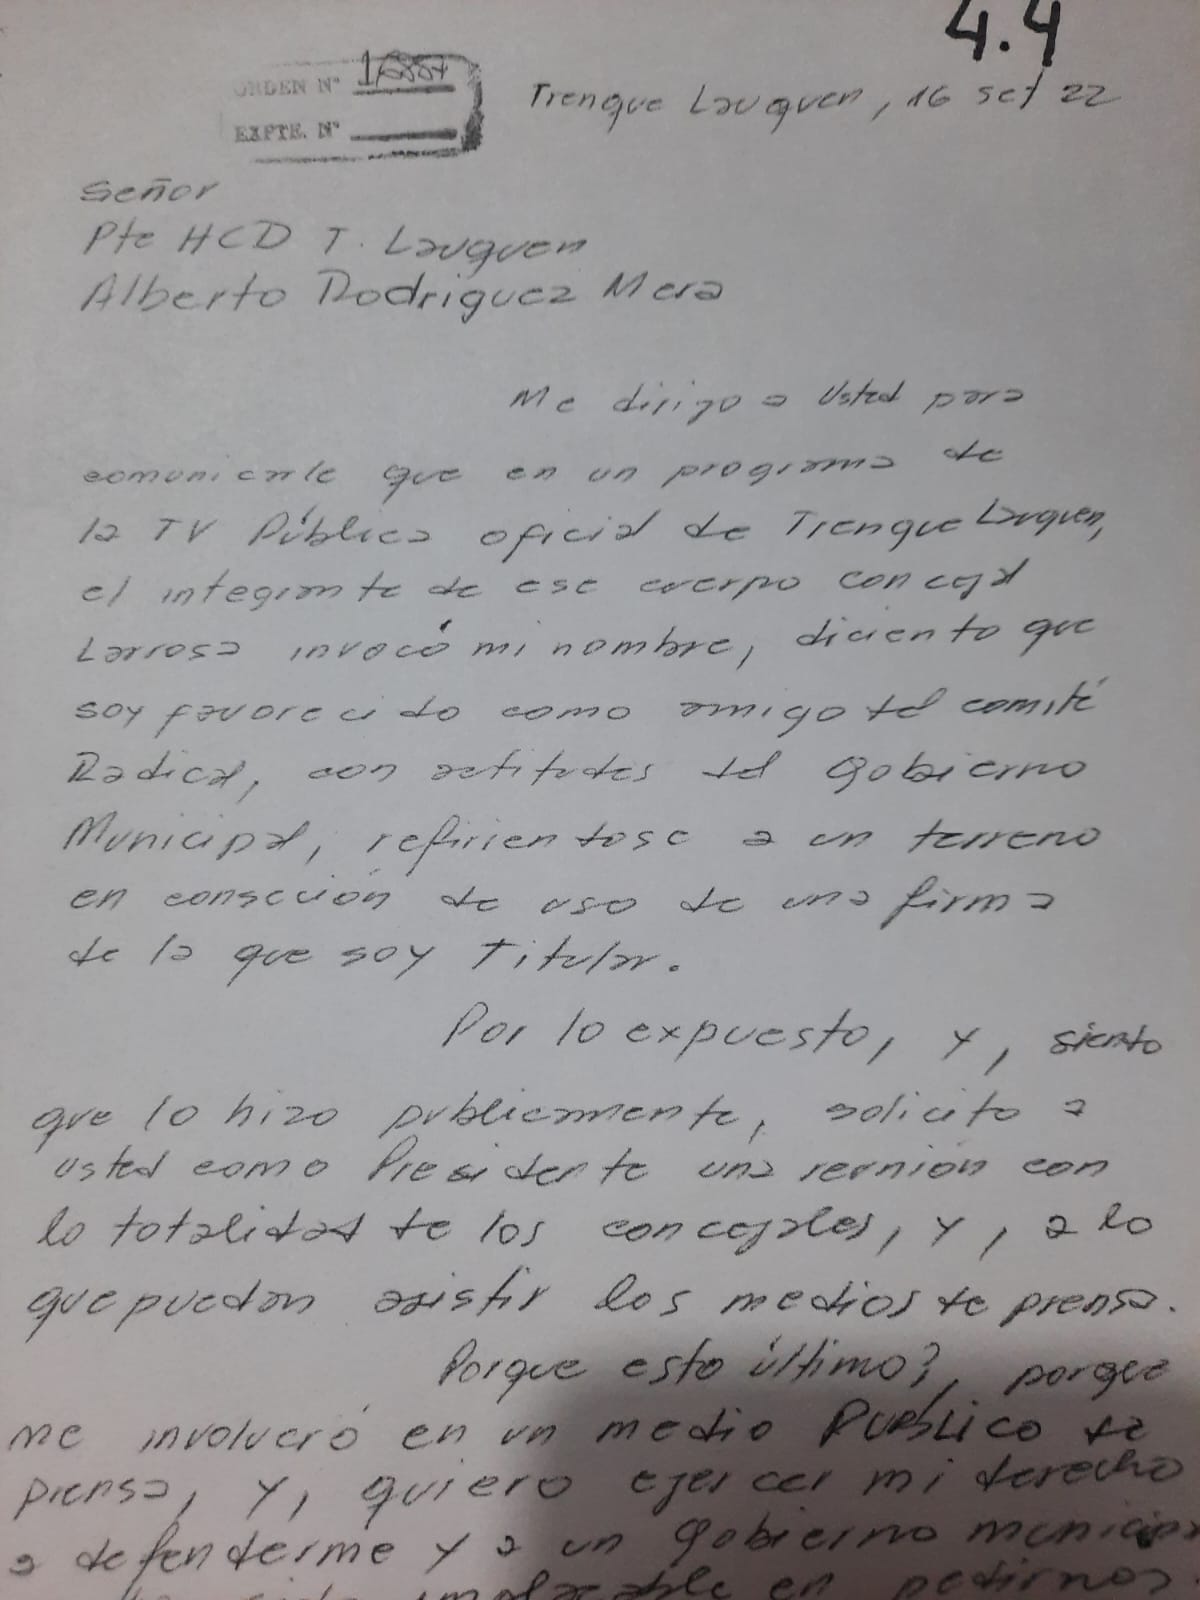 4.4
ORDEN N°
EXPTE. N°
Trenque Lauquen, 16 set 22
Señor
Pte HCD T. Lauquen
Alberto Rodriguez Mera
Me dirijo a Usted para
comunicarle que en un programa de
la TV Pública oficial de Trenque Lauquen,
el integrante de ese cuerpo concejal
Larrosa invocó mi nombre, diciendo que
soy favorecido como amigo del comité
Radical, con actitudes del Gobierno
Municipal, refiriendose a un terreno
en conseción de uso de una firma
de la que soy Titular.
Por lo expuesto, y, siendo
que lo hizo publicamente, solicito a
usted como Presidente una reunión con
la totalidad de los concejales, y, a lo
que puedan asistir los medios de prensa.
Porque esto último?, porque
me involucró en un medio PUBLICO de
prensa, y, quiero ejercer mi derecho
a defenderme y a un Gobierno municipa
implacable en pedirnos